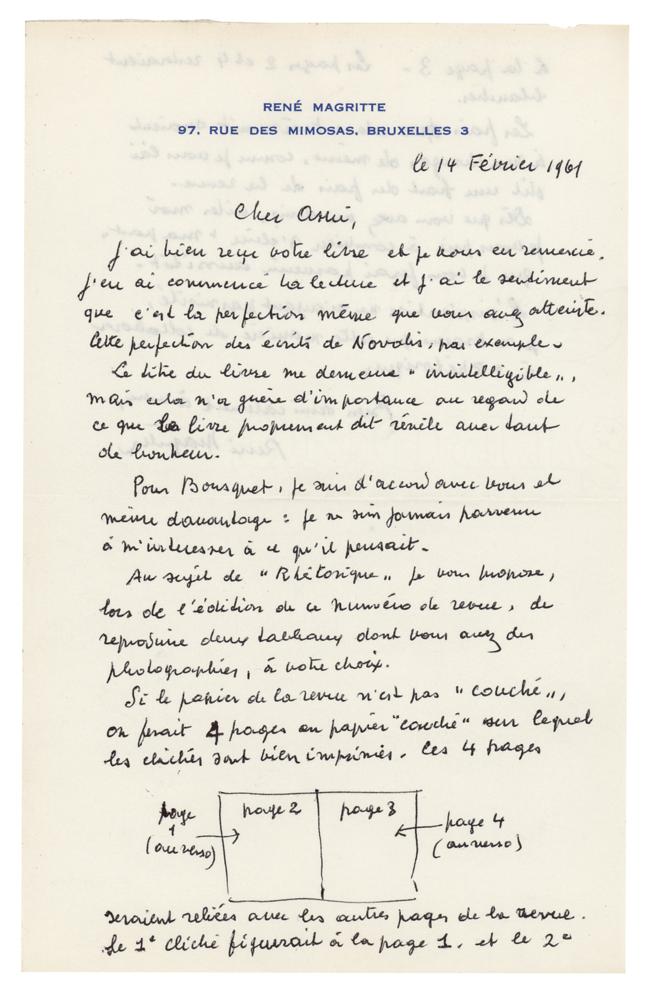 RENÉ MAGRITTE
97, RUE DES MIMOSAS, BRUXELLES 3
le 14 Février 1961
Cher
J'ai bien reçu votre livre et je vous en remercie.
J'en ai commencé la lecture et j'ai le sentiment
que c'est la perfection même que vous avez atteinte.
Cette perfection des écrits de Novalis, par exemple.
Le titre du livre me demeure "inintelligible",,
mais cela n'a guère d'importance au regard de
ce que le livre proprement dit révèle avec tant
de bonheur.
Pour Bousquet, je suis d'accord avec vous et
même davantage : je ne suis jamais parvenu
à m'intéresser à ce qu'il pensait.
Au sujet de "Rhétorique" je vous propose,
lors de l'édition de ce numéro de revue, de
reproduire deux tableaux dont vous avez des
photographies, à votre choix.
Si le papier de la revue n'est pas "couché",
on ferait 4 pages en papier "couché" sur lequel
les clichés sont bien imprimés. Ces 4 pages
page 1 (au verso)
page 2
page 3
page 4 (au verso)
seraient reliées avec les autres pages de la revue.
Le 1e cliché figurerait à la page 1. et le 2e